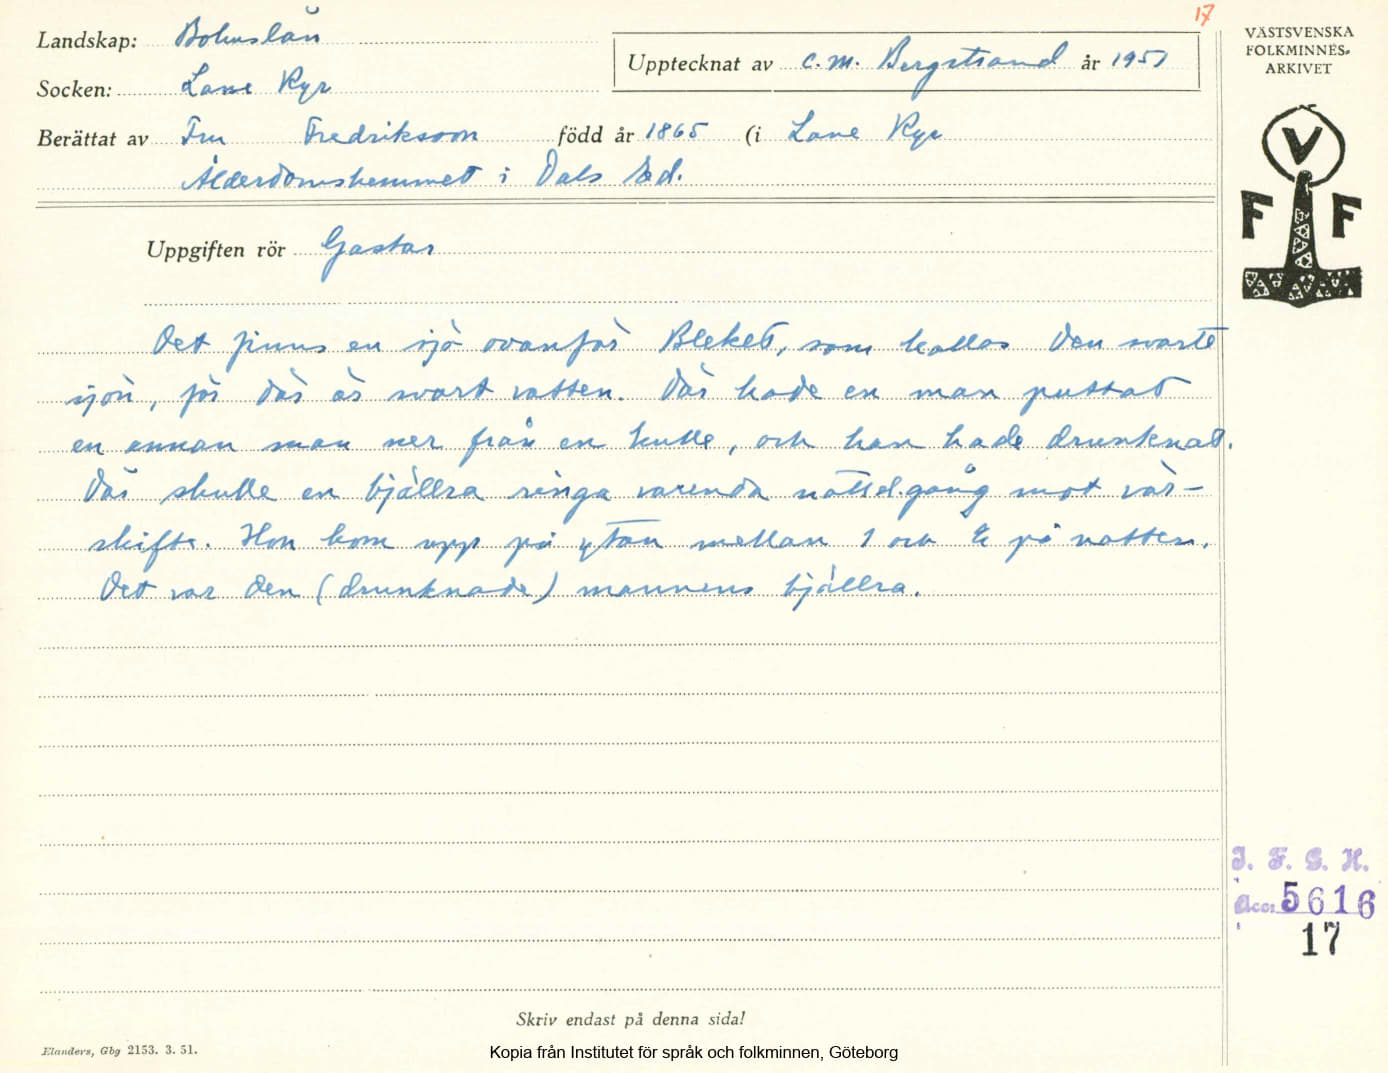 17
Landskap: Bohuslän
Upptecknat av C. M. Bergstrand år 1951
Socken: Lane Ryr
Berättat av Fru Fredriksson född år 1865 (i Lane Ryr
Ålderdomshemmet i Dals Ed.
VÄSTSVENSKA
FOLKMINNES-
ARKIVET
V
F F
Uppgiften rör Gastar
Det finns en sjö ovanför Bleket, som kallas Den svarte
sjön, för där är svart vatten. Där hade en man puttat
en annan man ner från en kulle, och han hade drunknat.
Där skulle en bjällra ringa varenda nattsel.gång mot vår-
skifte. Hon kom upp på ytan mellan 1 och 2 på natten.
Det var den (drunknade) mannens bjällra.
I. F. G. H.
Acc: 5616
17
Skriv endast på denna sida!
Elanders, Gbg 2153. 3. 51.
Kopia från Institutet för språk och folkminnen, Göteborg